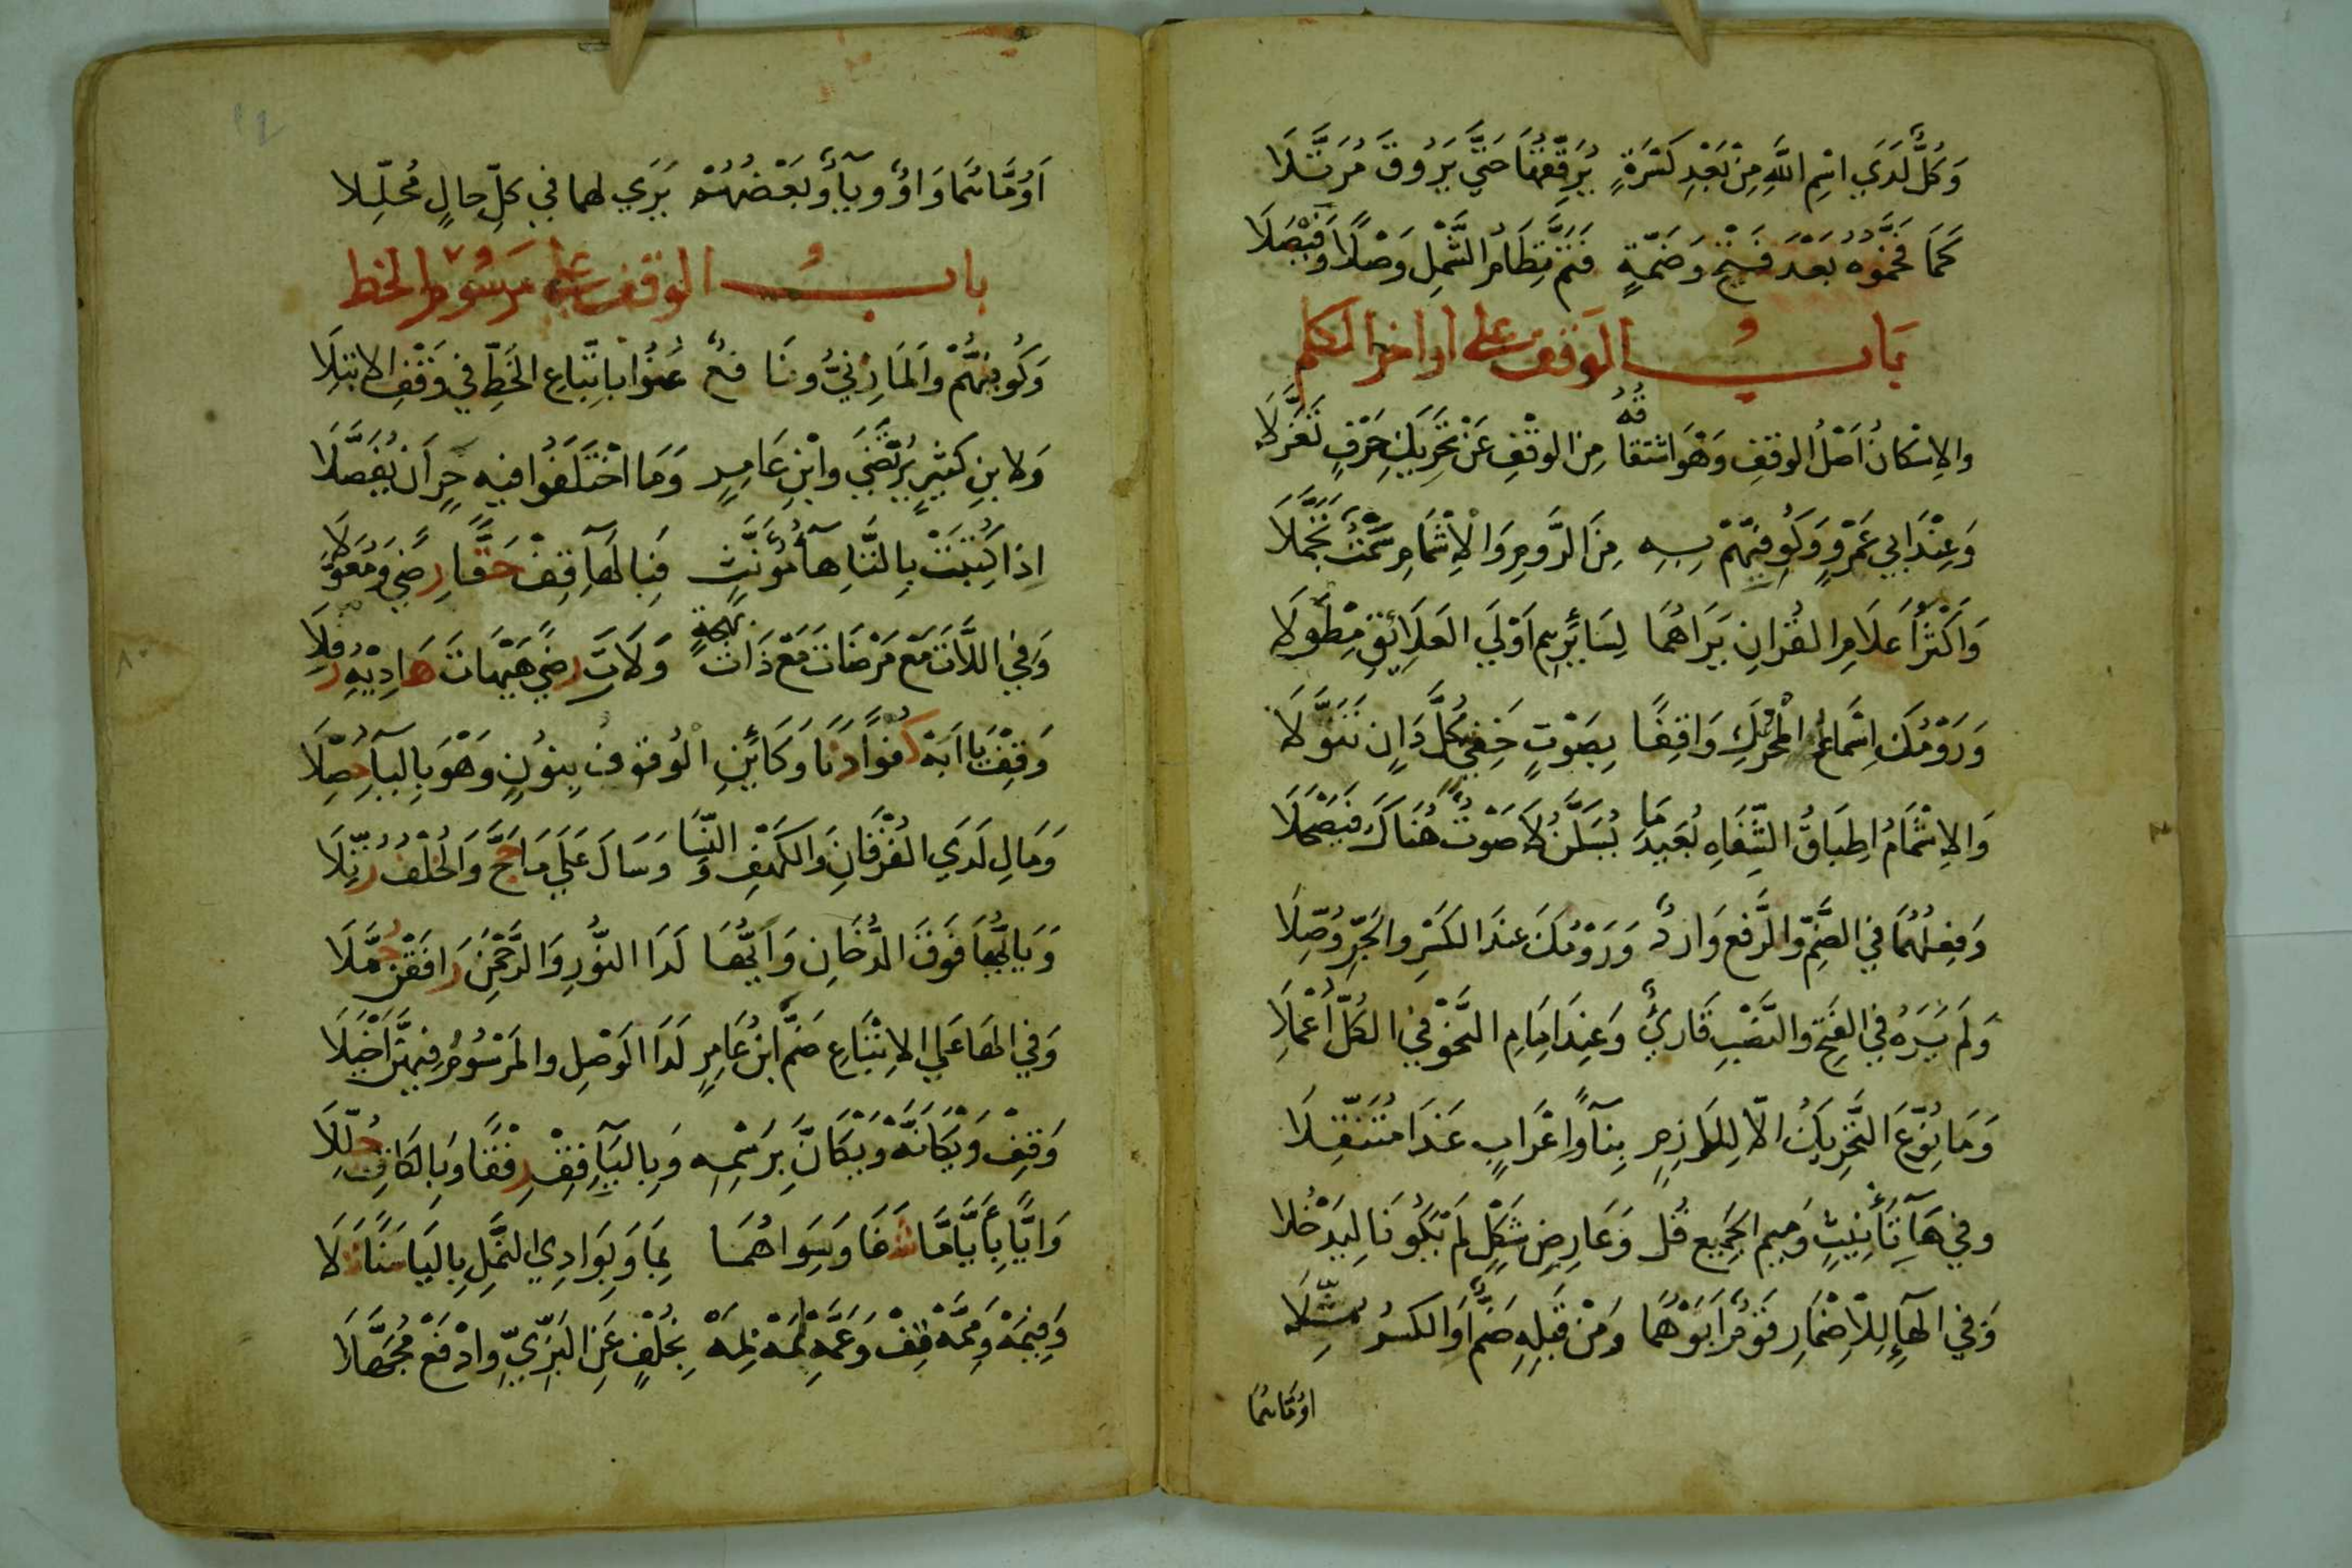 وَكُلٌّ لَدَي اسْمِ اللَّهِ مِنْ بَعْدِ كَسْرَةٍ يُرَقِّقُهَا حَتَّي يَرُوقَ مُرَتَّلَا
كَمَا فَخَّمُوهُ بَعْدَ فَتْحٍ وَضَمَّةٍ فَتَمَّ نِظَامُ الشَّمْلِ وَصْلًا وَفَيْصَلَا
بَابُ الوَقف على اواخر الكلم
والاِسْكانُ اَصْلُ الوقفِ وَهْوَ اشتقاقُهُ مِنَ الوقْفِ عَنْ تَحْرِيكِ حَرْفٍ تَعَزَّلَا
وَعِنْدَ اَبِي عَمْرٍو وَكُوفِيِّهِمْ بِهِ مِنَ الرَّومِ وَالْاِشْمَامِ سَمْتٌ تَجَمَّلَا
وَاَكْثَرُ اَعْلَامِ القُرَانِ يَرَاهُمَا لِسَائِرِهِم اَوْلَي العَلَائِقِ مِطْوَلَا
وَرَوْمُكَ اِسْمَاعُ الْمُحَرَّكِ وَاقِفًا بِصَوْتٍ خَفِيٍّ كُلَّ دَانٍ تَنَوَّلَا
وَالاِشْمَامُ اِطبَاقُ الشِّفَاهِ بُعَيْدَ مَا يُسَكَّنُ لَا صَوْتٌ هُنَاكَ فَيَصْحَلَا
وَفِعلُهُمَا فِي الضَّمِّ والرَّفعِ وَارِدٌ وَرَوْمُكَ عِندَ الكَسْرِ والجَرِّ وُصِّلَا
وَلَم يَرَهُ فِي الفَتحِ والنَّصْبِ قَارِئٌ وَعِندَ اِمَامِ النَّحْوِ فِي الكُلِّ اُعْمِلَا
وَمَا نُوِّعَ التَّحْرِيكُ الّا لِلَازِمٍ بِنَآءً وَاِعْرَابٍ غَدَا مُتَنَقِّلَا
وفي هَآءِ تَأْنِيثٍ وَمِيمِ الجَمِيعِ قُل وَعَارِضِ شَكْلٍ لَمْ يَكُونَا لِيَدْخُلَا
وَفي الهَآءِ لِلاِضْمَارِ قَوْمٌ اَبَوْهُمَا وَمِنْ قَبلِهِ ضَمٌّ اَوِ الكسرُ مُثِّلَا
اوُمَّاهُمَا
اَوُمَّاهُمَا وَاوٌ وَيَآءٌ وَبَعْضُهُمْ يَرَي لهما في كلِّ حالٍ مُحلِّلا
بابُ الوقف على مرسُوم الخط
وَكُوفِيُّهُمْ وَالمَازِنيُّ ونَافعٌ عُنُوا باتِّبَاعِ الخَطِّ فِي وَقْفِ الابتِلَا
وَلابنِ كَثِيرٍ يُرْتَضَي وابْنِ عَامِرٍ وَمَا اخْتَلَفُوا فيهِ حَرٍ اَن يُفَصَّلَا
اذا كُتِبَتْ بِالتَّاءِ هآءُ مُؤَنَّثٍ فَبِالهَآءِ قِفْ حَقًّا رِضًي وَمُعَوِّلَا
وَفِي اللَّاتَ مَع مَرْضَاتِ مَعْ ذَاتَ بَهْجَةٍ وَلَاتَ رِضًي هَيْهَاتَ هَادِيْهِ رُفِّلَا
وَقِفْ يَا اَبَهْ كُفْوًا دَنَا وَكَأَيِّنِ الْوُقوفُ بِنُونٍ وَهْوَ بِاليَآءِ حُصِّلَا
وَمَالِ لَدَي الفُرْقَانِ وَالكَهْفِ وَالنِّسَا وَسَالَ عَلَي مَا حَجَّ وَالْخُلْفُ رُتِّلَا
وَيَا اَيُّهَا فَوقَ الدُّخَانِ وَاَيُّهَا لَدَا النُّورِ وَالرَّحْمَنِ رَافَقْنَ حُمَّلَا
وَفِي الهَا عَلَي الاِتْبَاعِ ضَمَّ ابْنُ عَامِرٍ لَدَا الوَصْلِ والمَرْسُومُ فِيهِنَّ اَخْيَلَا
وَقِفْ وَيْكَاَنَّهْ وَيْكَاَنَّ بِرَسْمِهِ وَبِاليَآءِ قِفْ رِفْقًا وَبِالكَافِ حُلِّلَا
وَاَيًّا بِاَيًّامَّا شَفَا وَسِوَاهُمَا بِمَا وَبِوَادِي النَّمْلِ بِاليَا سَنًا تَلَا
وَفِيمَهْ وَمِمَّهْ قِفْ وَعَمَّهْ لِمَهْ بِمَهْ بِخُلْفٍ عَنِ البَزِّيِّ وَادْفَعْ مُجَهِّلَا